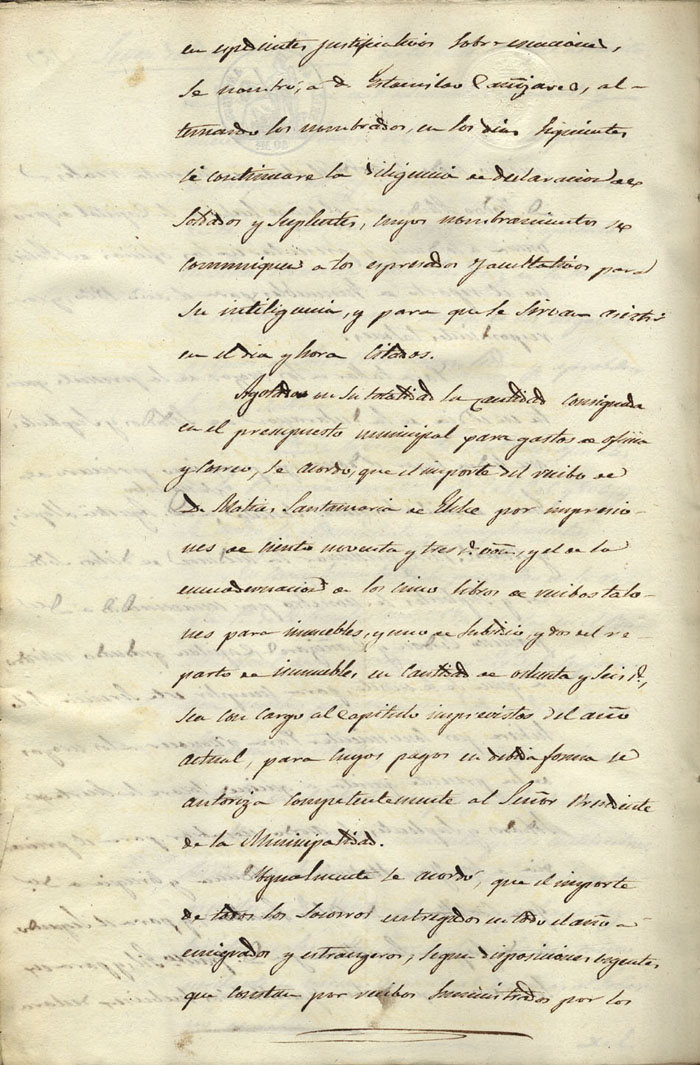 en expedientes justificativos sobre esaciones,
se nombró, á d. Estanislao Cañizares, al-
ternando los nombrados, en los dias siguientes
se continuare la diligencia de declaracion de
Soldados y Suplentes, cuyos nombramientos se
comunique á los espresados facultativos para
su inteligencia, y para que se sirvan asistir
en el dia y hora citados.
Agotada en su totalidad la cantidad consignada
en el presupuesto municipal para gastos de oficina
y Correo, se acordó, que el importe del recibo de
D. Matias Santamaria de Elche por impresio-
nes de ciento noventa y tres r.s von, y el de la
encuadernacion de los cinco libros de recibos talo-
nes para inmuebles, y uno de subsidio, y dos del re-
parto de inmuebles en cantidad de ochenta y seis r.s,
sea con cargo al Capitulo imprevistos del año
actual, para cuyos pagos en debida forma se
autoriza competentemente al Señor Presidente
de la Municipalidad.
Ygualmente se acordó, que el importe
de todos los Socorros entregados en todo el año á
emigrados y estrangeros, segun disposiciones vigentes
que constan por recibos suministrados por los